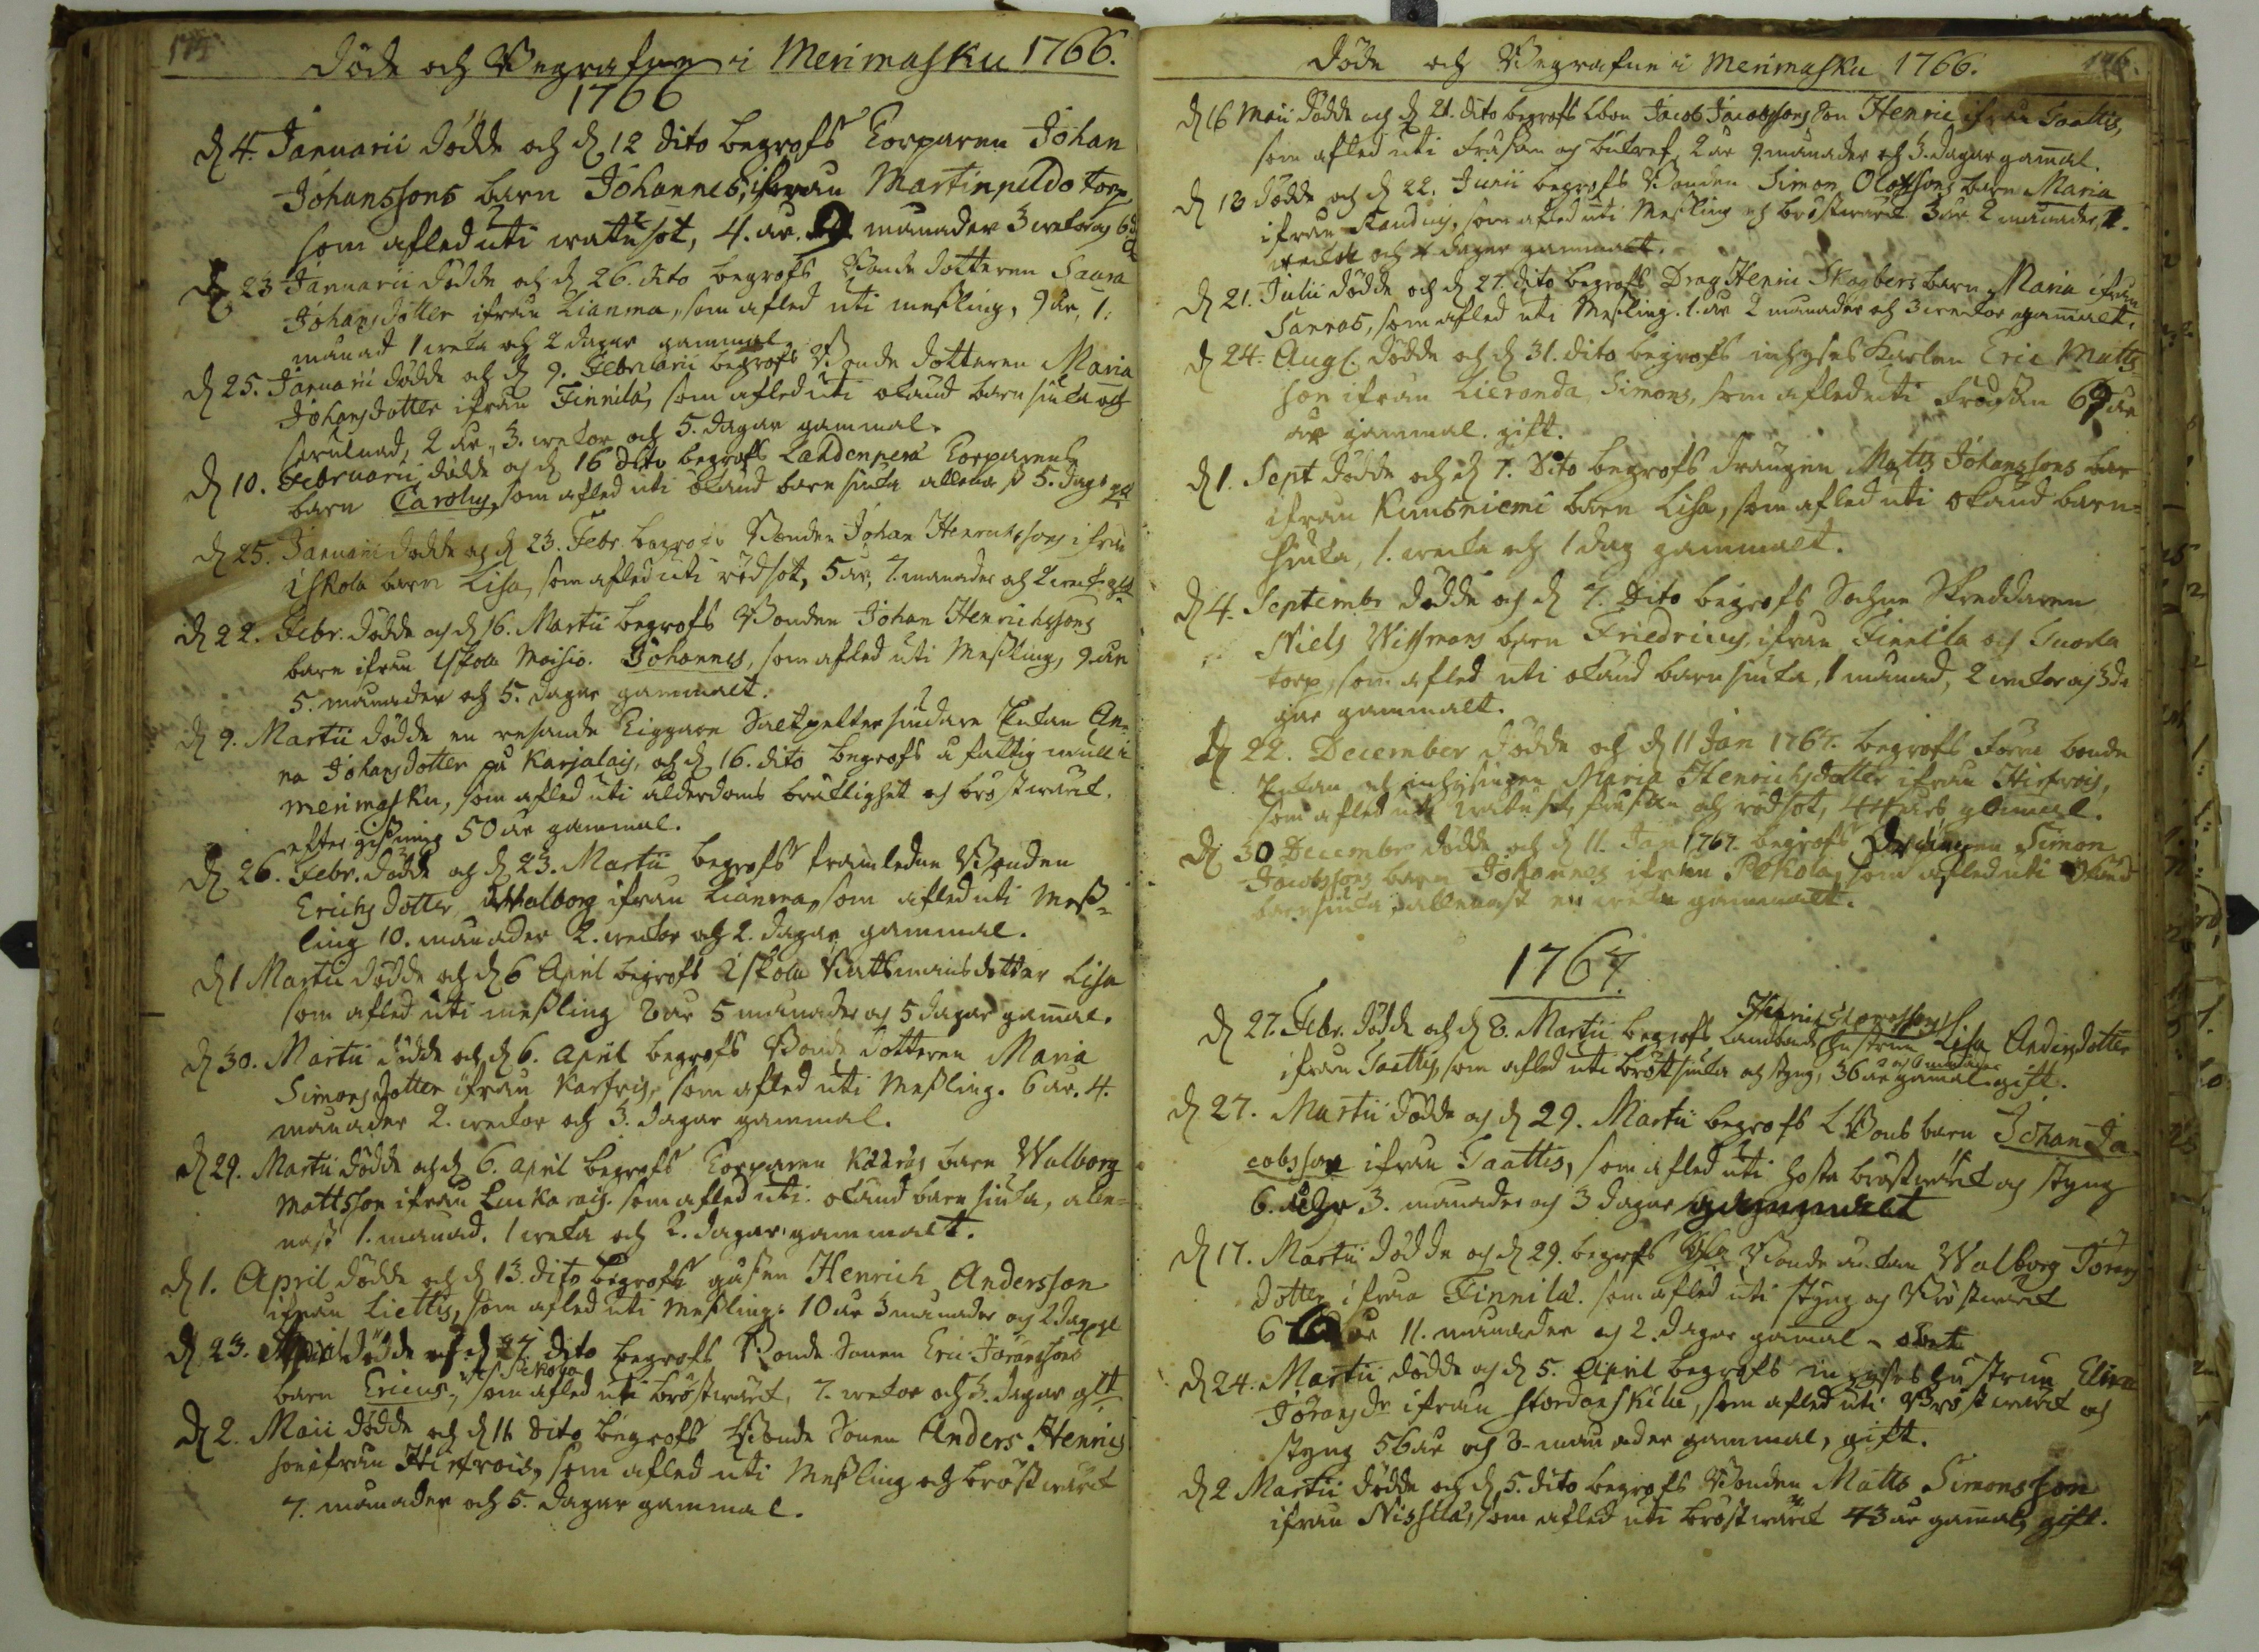 175
Döde och Begrafne i Merimasku 1766.
1766
d 4. Januarii dödde och d 12 dito begrofs Torparen Johan
Johanssons barn Johannes, ifrån Martinpeldo torp
som afled uti wattusot, 4. år. 9 månader 3 wekor och 6 d
d 23 Januarii dödde och d 26. dito begrofs Bonde dotteren Saara
Johansdotter ifrån Lianma, som afled uti messling, 9 år, 1.
månad 1 weka och 2 dagar gammal.
d 25. Januarii dödde och d 9. Februarii begrofs Bonde dotteren Maria
Johansdotter ifrån Finnilä, som afled uti okänd barnsiuka och
swulnad, 2 år, 3. wekor och 5. dagar gammal.
d 10. Februarii dödde och d 16 dito begrofs Landenperä Torparens
barn Carolus, som afled uti okänd barnsiuka allenast 5. dagr glt
d 25. Januarii dödde och d 23. Febr. begrofs Bonden Johan Henrichssons ifrån
Iskola barn Lisa, som afled uti rödsot, 5 år, 7. månader och 2 wek. glt
d 22. Febr. dödde och d 16. Martii begrofs Bonden Johan Henrichssons
barn ifrån Iskola Moisio. Johannes, som afled uti Messling, 9. år
5. månader och 5. dagar gammalt.
d 9. Martii dödde en resande Tiggare Saltpettersiudare Enkan An-
na Johansdotter på Karjalais, och d 16. dito begrofs å fattig mull i
Merimasku, som afled uti ålderdoms bräcklighet och bröstwärk.
efter gissning 50 år gammal.
d 26. Febr. dödde och d 23. Martii begrofs framledne Bonden
Erichs dotter Walborg ifrån Lianma, som afled uti Mess-
ling 10. månader 2. wekor och 2. dagar gammal.
d 1 Martii dödde och d 6 April begrofs Iskola Rattsmansdotter Lisa
som afled uti messling 2 år 5 månader och 5 dagar gamal.
d 30. Martii dödde och d 6. April begrofs Bonde dotteren Maria
Simonsdotter ifrån Karfris, som afled uti Messling. 6 år. 4.
månader 2. wekor och 3. dagar gammal.
d 29. Martii dödde och d 6. April begrofs Torparen Kääräs barn Walborg
Mattsson ifrån Luckarais. som afled uti okänd barnsiuka, alle-
nast 1. månad. 1 weka och 2. dagar gammalt.
d 1. April dödde och d 13. dito begrofs gåssen Henrich Andersson
ifrån Liettis, som afled uti Messling. 10 år 3 månader och 2 dag gl
d 23. April dödde och d 27 dito begrofs Bonde Sonen Eric Jöranssons
barn Ericus, som afled uti bröstwärk, 7. wekor och 3. dagar glt
d 2. Maii dödde och d 11 dito begrofs Bonde Sonen Anders Henrics
son ifrån Hirfrois, som afled uti Messling och bröstwärk
7. månader och 5. dagar gammal.
176.
Döde och Begrafne i Merimasku 1766.
d 16 Maii dödde och d 21. dito begrofs Lbon Jacob Jacobssons Son Henric ifrån Taattis,
som afled uti Fråssan och 2 år 9. månader och 3. dagar gamal.
d 13 dödde och d 22. Junii begrofs Bonden Simon Olofssons barn Maria
ifrån Randus, som afled uti Messling och bröstwärk 3 år 2 månader, 1.
weka och 4 dagar gammalt.
d 21. Julii dödde och d 27. dito begrofs Drag Henric Skogbers barn Maria ifrån
Sannas, som afled uti Messling. 1. år 2 månader och 3 wekor gamalt.
d 24. Aug. dödde och d 31. dito begrofs inhyses Karlen Eric Matts
son ifrån Lieranda Simons, som afled uti Frossan 69 år
år gammal. gift.
d 1. Sept dödde och d 7. Dito begrofs drängen Matts Johanssons bar
ifrån Kuusniemi barn Lisa, som afled uti okänd barn-
siuka, 1. wecka och 1 dag gammalt.
d 4. Septembr dödde och d 7. Dito begrofs Sochne Skreddaren
Niels Witsmans barn Friedricus ifrån Finnila och Suorla
torp, som afled uti okänd barnsiuka, 1 månad, 2 wekor och 3 da
gar gammalt.
d 22. December dödde och d 11 Jan 1767. begrofs förra bonde
Enkan och inhysingen Maria Henrichsdotter ifrån Hirfrois,
som afled uti wattusot, fråssan och rödsot, 44 års gammal.
d 30 Decembr dödde och d 11. Jan 1767. begrofs Drängen Simon
Jacobssons barn Johannes ifrån Pekola, som afled uti okänd
barnsiuka allenast en wecka gammalt.
1767.
d 27. Febr. dödde och d 8. Martii begrofs Landbonde Hustrun Lisa Andersdotter
ifrån Taattis, som afled uti bröstsiuka och styng, 36 år 6 månader gamal gift.
d 27. Martii dödde och d 29. Martii begrofs LBons barn Johan Ja
cobsson ifrån Taattis, som afled uti hosta bröstwärk och styng
6. år 3. månader och 3 dagar gammalt
d 17. Martii dödde och d 29. begrofs Bonde änkan Walborg Jörans
dotter ifrån Finnilä. som afled uti styng och Bröstwärk
6 år 11. månader och 2. dagar gamal
d 24. Martii dödde och d 5. April begrofs inhyses hustrun Elin
Jöransdr ifrån Stordanskila, som afled uti Bröstwärk och
styng 56 år och 3 månader gammal, gift.
d 2 Martii dödde och d 5. dito begrofs Bonden Matts Simonsson
ifrån Nissilä, som afled uti bröstwärk 73 år gamal, gift.